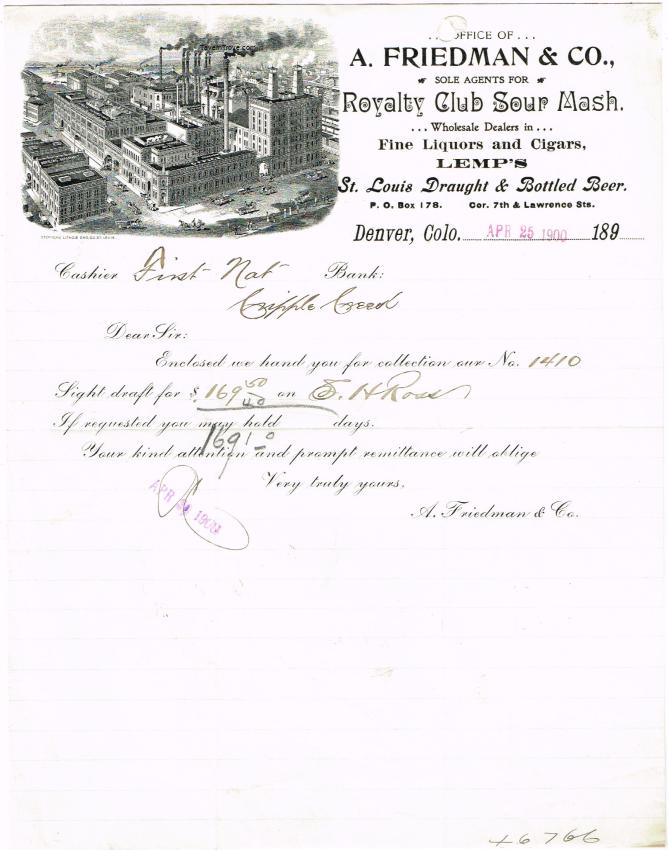 TavernTrove.com
...OFFICE OF...
A. FRIEDMAN & CO.,
SOLE AGENTS FOR
Royalty Club Sour Mash.
...Wholesale Dealers in...
Fine Liquors and Cigars,
LEMP'S
St. Louis Draught & Bottled Beer.
P. O. Box 178. Cor. 7th & Lawrence Sts.
Denver, Colo. APR 25 1900 189
Cashier First Nat Bank:
Cripple Creek
Dear Sir:
Enclosed we hand you for collection our No. 1410
Sight draft for $ 169 50 on E. H Ross
40
If requested you may hold days.
169 10
Your kind attention and prompt remittance will oblige
Very truly yours,
APR 1900
A. Friedman & Co.
+6766